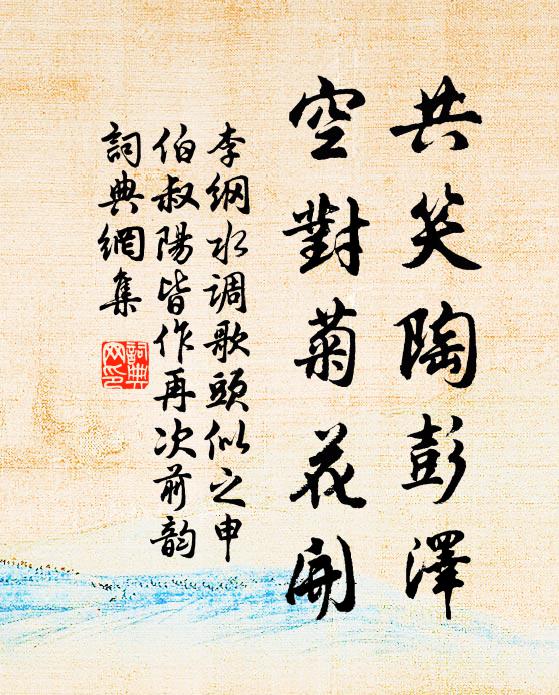 共笑陶彭澤
空對菊花開
李纲水调歌頭似之申
伯叔陽皆作再次前韵
詞典網集
詞典
网印